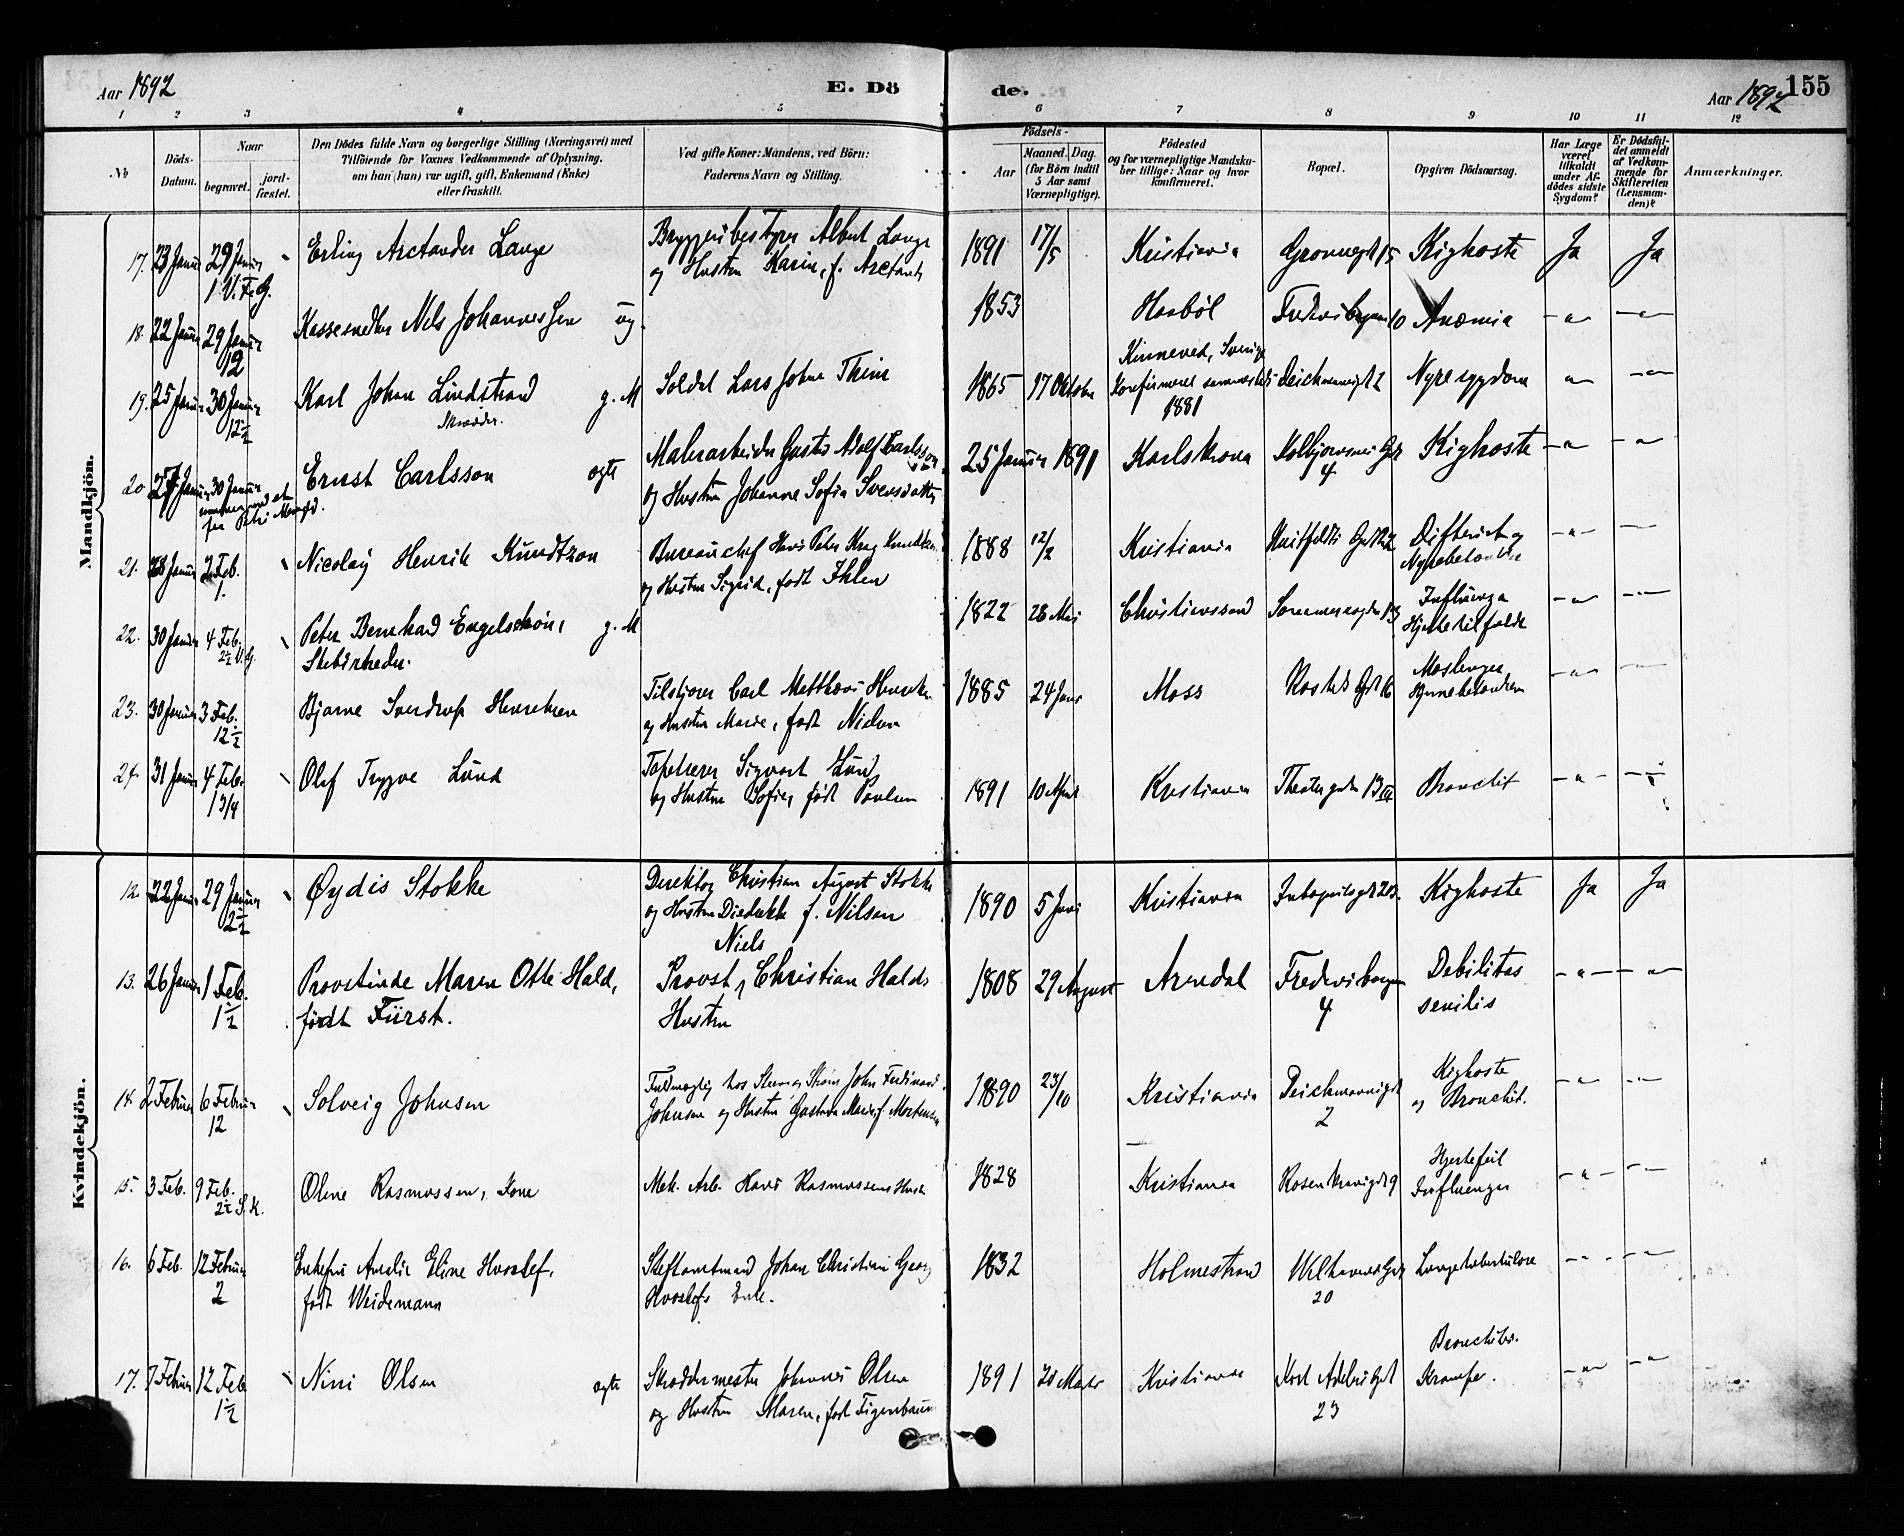 Aar 1892
E. Dö
de.
Aar 1892
155
1 2 3 4 5 6 7 8 9 10 11 12
No
Döds-Datum.
Naar
begravet.
jord-fæstet.
Den Dödes fulde Navn og borgerlige Stilling (Næringsvei) med
Tilföiende for Voxnes Vedkommende af Oplysning,
om han (hun) var ugift, gift, Enkemand (Enke)
eller fraskilt.
Ved gifte Koner: Mandens, ved Börn:
Faderens Navn og Stilling.
Födsels-
Aar
Maaned. Dag.
(for Börn indtil
5 Aar samt
Værnepligtige).
Födested
og for værnepligtige Mandska-
ber tillige: Naar og hvor
konfirmeret.
Bopæl.
Opgiven Dödsaarsag.
Har Læge
været
tilkaldt
under Af-
dödes sidste
Sygdom?
Er Dödsfal-
det anmeldt
af Vedkom-
mende for
Skifteretten
(Lensman-
den)?
Anmærkninger.
Mandkjön.
17. 23 Januar 29 Januar Erling Arctander Lange Bryggeribestyrer Albert Lange 1891 17/5 Kristiania 15 Kighoste Ja Ja
1 V. F. G. og Hustru Karin, f. Arctander
18. 22 Januar 29 Januar Nils Johannessen ug. 1853 Haaböl 10 Anæmia -"- -"-
12
19. 25 Januar 30 Januar Karl Johan Lindstrand g. M Soldat Lars Johan Thim 1865 17 Oktober Kinneved, Sverige 2 Nyresygdom -"- -"-
12½ Skrædder. Konfirmeret sammesteds
1881
20 27 Januar 30 Januar Ernst Carlsson ægte Malerarbeider Gustav Adolf Carlsson 25 Januar 1891 Karlskrona 4 Kighoste -"- -"-
og Hustru Johanne Sofia Svensdatter
21. 28 Januar 2 Feb. Nicolay Henrik Knudtzon Bureauchef Hans Peter Krag Knudtzon 1888 12/2 Kristiania Huitfeldts Gd 22 Difterit og -"- -"-
1. og Hustru Sigrid, født Ihlen Nyrebetændelse
22. 30 Januar 4 Feb. Peter Bernhard Engelschøn, g. M 1822 28 Mai Christianssand 13 Influenza -"- -"-
2½ V. G. Hjertetilfælde
23. 30 Januar 3 Feb. Bjarne Sverdrup Henriksen Carl Matthæus Henriksen 1885 24 Janr Moss 16 Mæslinger -"-
12½ og Hustru Marie, født Nielsen Hjernebetændelse
24. 31 Januar 4 Feb. Olaf Trygve Lund Tapetserer Sigvart Lund 1891 10 April Kristiania Theatergaden 13 III Bronchit -"- -"-
1 3/4 og Hustru Sofie, født Paulsen
Kvindekjön.
12. 22 Januar 29 Januar Øydis Stokke Direktør Christian August Stokke 1890 5 Juni Kristiania Kighoste Ja Ja
2½ og Hustru Diederikke f. Nilsen
13. 26 Januar 1 Feb. Provstinde Maren Otte Hald, Provst Niels Christian Halds 1808 29 August Arendal 4 Debilitas -"- -"-
1½ født Fürst. Hustru senilis
14 2 Februar 6 Februar Solveig Johnsen Fuldmægtig hos Steen og Strøm John Ferdinand 1890 23/10 Kristiania 2 Kighoste -"- -"-
12 Johnsen og Hustru Gustava Marie f. Mortensen og Bronchit.
15. 3 Feb. 9 Feb. Oline Rasmussen, Kone Mek. Arb. Hans Rasmussens Hustru 1828 Kristiania 9 Hjertefeil -"- -"-
2½ S. K. Influenza
16. 6 Feb. 12 Februar Enkefru Amalie Eline Hvoslef, Stiftamtmand Johan Christian Georg 1832 Holmestrand Welhavens Gd Lungetuberkulose -"- -"-
2 født Weidemann Hvoslefs Enke. 20
17. 7 Februar 12 Feb Nini Olsen ægte Skræddermester Johannes Olsen 1891 Kristiania Kort Adelers Gd Bronchitis. -"- -"-
1½ og Hustru Maren, født Figenbaum 23 Krampe.